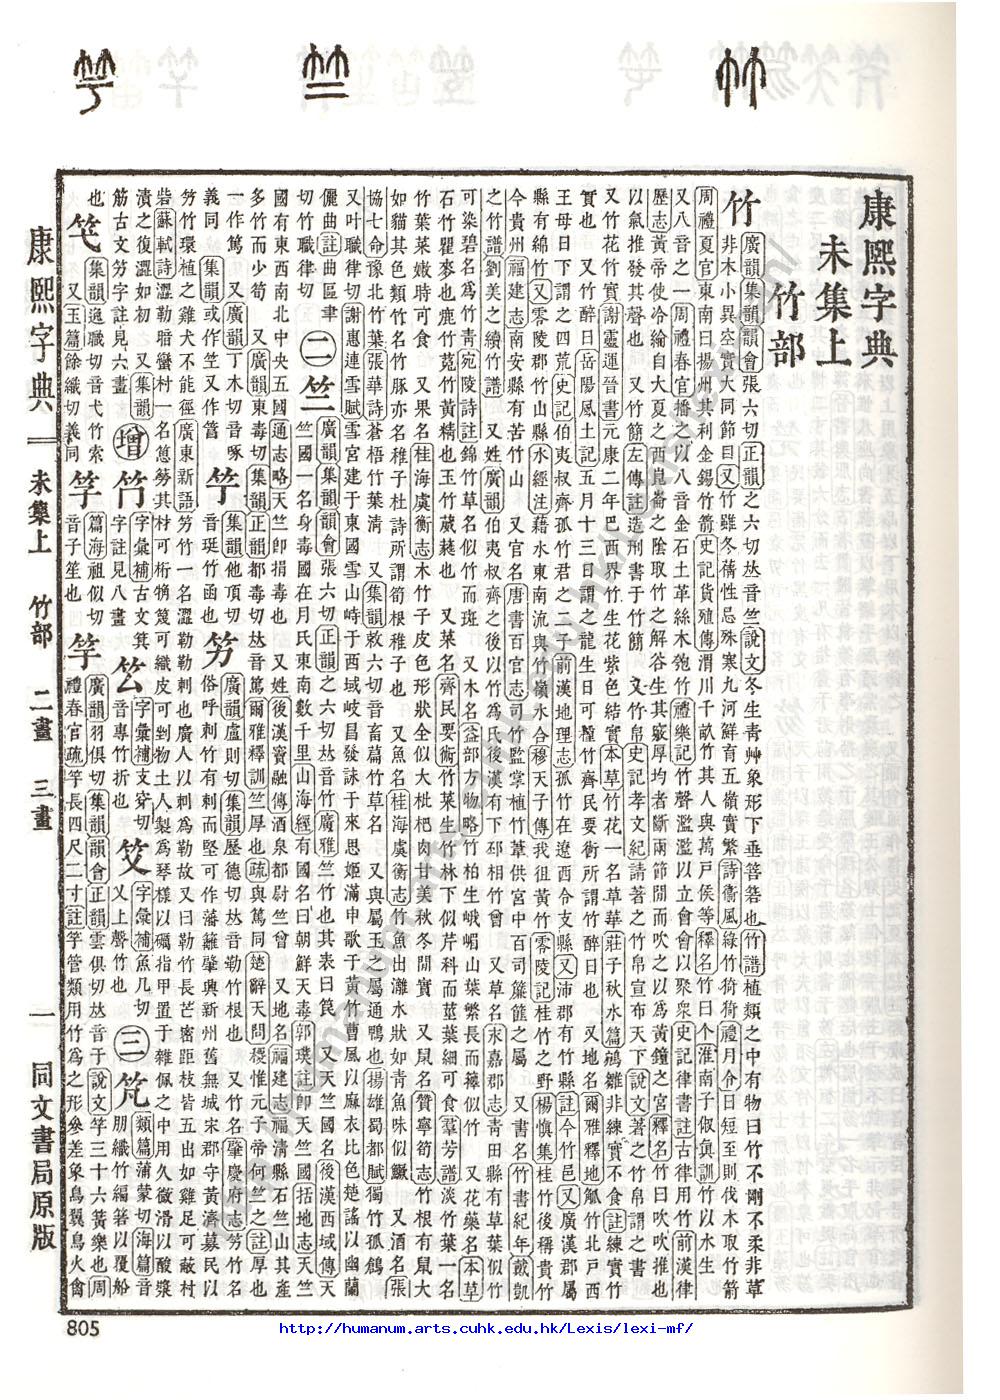 康熙字典
未集上
竹部
竹 廣韻集韻韻會張六切正韻之六切𠀤音竺說文冬生靑艸象形下垂箁箬也竹譜植類之中有物曰竹不剛不柔非草
非木小異空實大同節目又竹雖冬蒨性忌殊寒九河鮮有五嶺實繁詩衞風綠竹猗猗禮月令日短至則伐木取竹箭
周禮夏官東南曰揚州其利金錫竹箭史記貨殖傳渭川千畝竹其人與萬戸侯等釋名竹曰个淮南子俶眞訓竹以水生
又八音之一周禮春官播之以八音金石土革絲木匏竹禮樂記竹聲濫濫以立會會以聚衆史記律書註古律用竹前漢律
歷志黃帝使泠綸自大夏之西崑崙之陰取竹之解谷生其竅厚均者斷兩節閒而吹之以爲黃鐘之宮釋名竹曰吹吹推也
以氣推發其聲也 又竹簡左傳造刑書于竹簡 又竹帛史記孝文紀請著之竹帛宣布天下說文著之竹帛謂之書
又竹花竹實謝靈運晉書元康二年巴西界竹生花紫色結實本草竹花一名草華莊子秋水篇鵷雛非練實不食註練實竹
實也 又竹醉日岳陽風土記五月十三日謂之龍生日可種竹齊民要術所謂竹醉日也 又地名爾雅釋地觚竹北戸西
王母日下謂之四荒史記伯夷叔齊孤竹君之二子前漢地理志孤竹在遼西令支縣又沛郡有竹縣註今竹邑又廣漢郡屬
縣有綿竹又零陵郡竹山縣水經注藉水東南流與竹嶺水合穆天子傳我徂黃竹零陵記桂竹之野楊愼集桂竹後稱貴竹
今貴州福建志南安縣有苦竹山 又官名唐書百官志司竹監掌植竹葦供宮中百司簾篚之屬 又書名竹書紀年戴凱
之竹譜劉美之續竹譜 又姓廣韻伯夷叔齊之後以竹爲氏後漢有下邳相竹曾 又草名永嘉郡記靑田縣有草葉似竹
可染碧名爲竹靑宛陵詩註錦竹草名似竹而斑 又木名益部方物略竹柏生峨嵋山葉繁長而籜似竹 又花藥名本草
石竹瞿麥也鹿竹菟竹黃精也玉竹葳蕤也 又菜名齊民要術竹菜生竹林下似芹科而莖葉細可食羣芳譜淡竹葉一名
竹葉菜嫩時可食 又果名桂海虞衡志木竹子皮色形狀全似大枇杷肉甘美秋冬閒實 又鼠名贊寧筍志竹根有鼠大
如貓其色類竹名竹豚亦名稚子杜詩所謂筍根稚子也 又魚名桂海虞衡志竹魚出灕水狀如靑魚味似鱖 又酒名張
協七命豫北竹葉張華詩蒼梧竹葉淸 又集韻敕六切音畜篇竹草名 又與屬玉之屬通鴨也揚雄蜀都賦獨竹孤鶬
又叶職律切謝惠連雪賦雪宮建于東國雪山峙于西域岐昌發詠于來思姬滿申歌于黃竹曹風以麻衣比色楚謠以幽蘭
儷曲註曲區聿切竹職律切
二 竺 廣韻集韻韻會張六切正韻之六切𠀤音竹廣雅竺竹也其表曰笢 又天竺國名後漢西域傳天
竺國一名身毒國在月氏東南數千里山海經有國名曰朝鮮天毒郭璞註卽天竺國括地志天竺
國有東西南北中央五國通志略天竺卽捐毒也 又姓後漢竇融傳酒泉都尉竺曾 又地名福建志福淸縣石竺山其產
多竹而少筍 又廣韻東毒切集韻正韻都毒切𠀤音篤爾雅釋訓竺厚也疏與篤同楚辭天問稷惟元子帝何竺之註厚也
一作篤又廣韻丁木切音啄義同 集韻或作笁又作篙
集韻他頂切音珽竹函也
竻 廣韻盧則切集韻歷德切𠀤音勒竹根也 又竹名肇慶府志竻竹名
俗呼刺竹有刺而堅可作藩籬肇興新州舊無城宋郡守黃濟募民以
竻竹環植之雞犬不能徑廣東新語竻竹一名澀勒勒刺也廣人以刺爲勒故又曰勒竹長芒密距枝皆五出如雞足可蔽村
砦蘇軾詩澀勒暗蠻村一名䈬簩其材可桁桷篾可織皮可剉物土人製爲琴樣以礪指甲置于雜佩之中用久微滑以酸漿
漬之復澀如初 又集韻筋古文竻字註見六畫
增 竹 字彙補古文箕字註見八畫
字彙補音專竹折也
字彙補支穽切又上聲竹也
字彙補魚几切
三 竼 類篇蒲蒙切海篇音朋織竹編箬以覆船
也
笂 集韻逸職切音弋竹索 又玉篇餘織切義同
篇海祖似切音子笙也
竽 廣韻羽俱切集韻韻會正韻雲俱切𠀤音于說文竽三十六簧樂也周
禮春官疏竽長四尺二寸註竽管類用竹爲之形參差象鳥翼鳥火禽
康熙字典 未集上 竹部 二畫 三畫 一 同文書局原版
805
http://humanum.arts.cuhk.edu.hk/Lexis/lexi-mf/